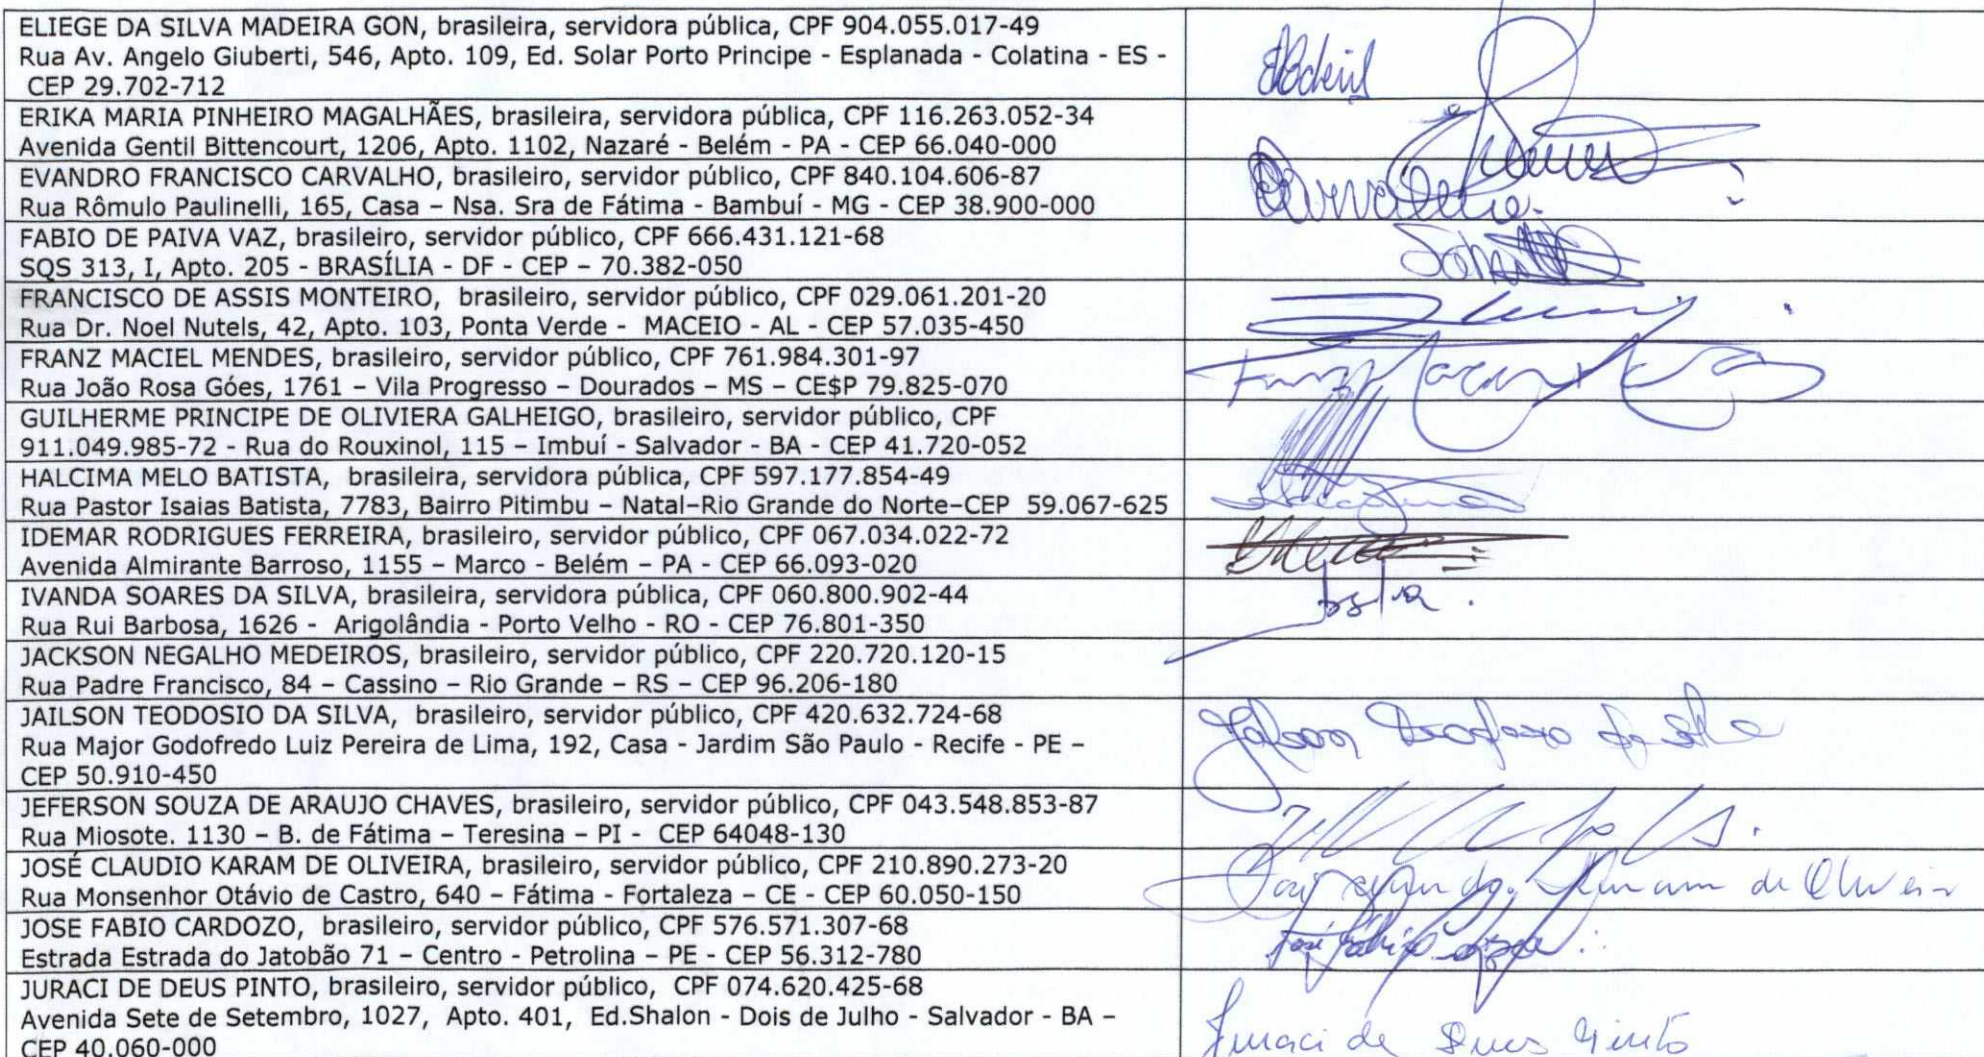 ELIEGE DA SILVA MADEIRA GON, brasileira, servidora pública, CPF 904.055.017-49
Rua Av. Angelo Giuberti, 546, Apto. 109, Ed. Solar Porto Principe - Esplanada - Colatina - ES -
CEP 29.702-712
ERIKA MARIA PINHEIRO MAGALHÃES, brasileira, servidora pública, CPF 116.263.052-34
Avenida Gentil Bittencourt, 1206, Apto. 1102, Nazaré - Belém - PA - CEP 66.040-000
EVANDRO FRANCISCO CARVALHO, brasileiro, servidor público, CPF 840.104.606-87
Rua Rômulo Paulinelli, 165, Casa – Nsa. Sra de Fátima - Bambuí - MG - CEP 38.900-000
FABIO DE PAIVA VAZ, brasileiro, servidor público, CPF 666.431.121-68
SQS 313, I, Apto. 205 - BRASÍLIA - DF - CEP – 70.382-050
FRANCISCO DE ASSIS MONTEIRO, brasileiro, servidor público, CPF 029.061.201-20
Rua Dr. Noel Nutels, 42, Apto. 103, Ponta Verde - MACEIO - AL - CEP 57.035-450
FRANZ MACIEL MENDES, brasileiro, servidor público, CPF 761.984.301-97
Rua João Rosa Góes, 1761 – Vila Progresso – Dourados – MS – CE$P 79.825-070
GUILHERME PRINCIPE DE OLIVIERA GALHEIGO, brasileiro, servidor público, CPF
911.049.985-72 - Rua do Rouxinol, 115 – Imbuí - Salvador - BA - CEP 41.720-052
HALCIMA MELO BATISTA, brasileira, servidora pública, CPF 597.177.854-49
Rua Pastor Isaias Batista, 7783, Bairro Pitimbu – Natal–Rio Grande do Norte–CEP 59.067-625
IDEMAR RODRIGUES FERREIRA, brasileiro, servidor público, CPF 067.034.022-72
Avenida Almirante Barroso, 1155 – Marco - Belém – PA - CEP 66.093-020
IVANDA SOARES DA SILVA, brasileira, servidora pública, CPF 060.800.902-44
Rua Rui Barbosa, 1626 - Arigolândia - Porto Velho - RO - CEP 76.801-350
JACKSON NEGALHO MEDEIROS, brasileiro, servidor público, CPF 220.720.120-15
Rua Padre Francisco, 84 – Cassino – Rio Grande – RS – CEP 96.206-180
JAILSON TEODOSIO DA SILVA, brasileiro, servidor público, CPF 420.632.724-68
Rua Major Godofredo Luiz Pereira de Lima, 192, Casa - Jardim São Paulo - Recife - PE –
CEP 50.910-450
JEFERSON SOUZA DE ARAUJO CHAVES, brasileiro, servidor público, CPF 043.548.853-87
Rua Miosote. 1130 – B. de Fátima – Teresina – PI - CEP 64048-130
JOSÉ CLAUDIO KARAM DE OLIVEIRA, brasileiro, servidor público, CPF 210.890.273-20
Rua Monsenhor Otávio de Castro, 640 – Fátima - Fortaleza – CE - CEP 60.050-150
de Oliveira
JOSE FABIO CARDOZO, brasileiro, servidor público, CPF 576.571.307-68
Estrada Estrada do Jatobão 71 – Centro - Petrolina – PE - CEP 56.312-780
JURACI DE DEUS PINTO, brasileiro, servidor público, CPF 074.620.425-68
Avenida Sete de Setembro, 1027, Apto. 401, Ed.Shalon - Dois de Julho - Salvador - BA –
CEP 40.060-000
Juraci de Deus Pinto